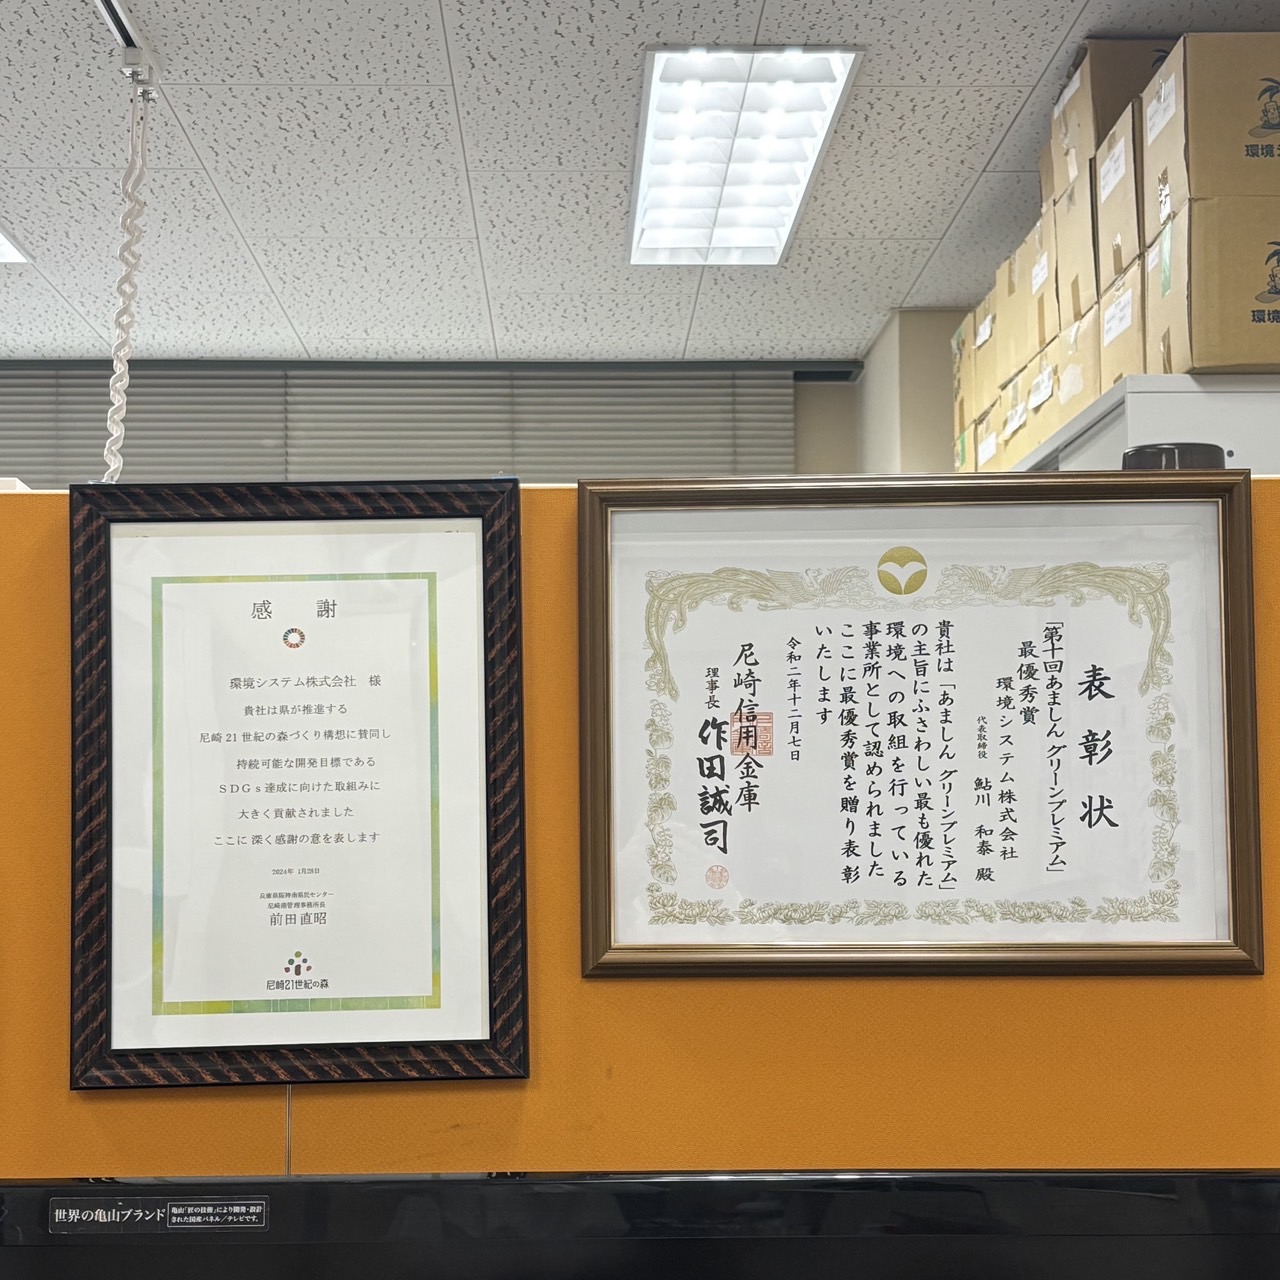 感謝
環境システム株式会社 様
貴社は県が推進する
尼崎21世紀の森づくり構想に賛同し
持続可能な開発目標である
SDGs達成に向けた取組みに
大きく貢献されました
ここに 深く感謝の意を表します
2024年 1月28日
兵庫県阪神南県民センター
尼崎港管理事務所長
前田 直昭
尼崎21世紀の森
表彰状
「第十回あましん グリーンプレミアム」
最優秀賞
環境システム株式会社
代表取締役 鮎川 和泰 殿
貴社は「あましん グリーンプレミアム」
の主旨にふさわしい最も優れた
環境への取組を行っている
事業所として認められました
ここに最優秀賞を贈り表彰
いたします
令和二年十二月七日
尼崎信用金庫
理事長 作田誠司
環境
環境
世界の亀山ブランド
亀山「匠の技術」により開発・設計
された国産パネル／テレビです。